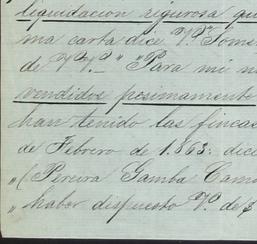 liquidacion rigurosa qu
ma carta dice V. Some
de VV._ " "Para mi n
vendidos pesimamente
han tenido las fincas
de Febrero de 1.863: dice
"(Pereira Gamba Cama
"haber despuesto V. de $